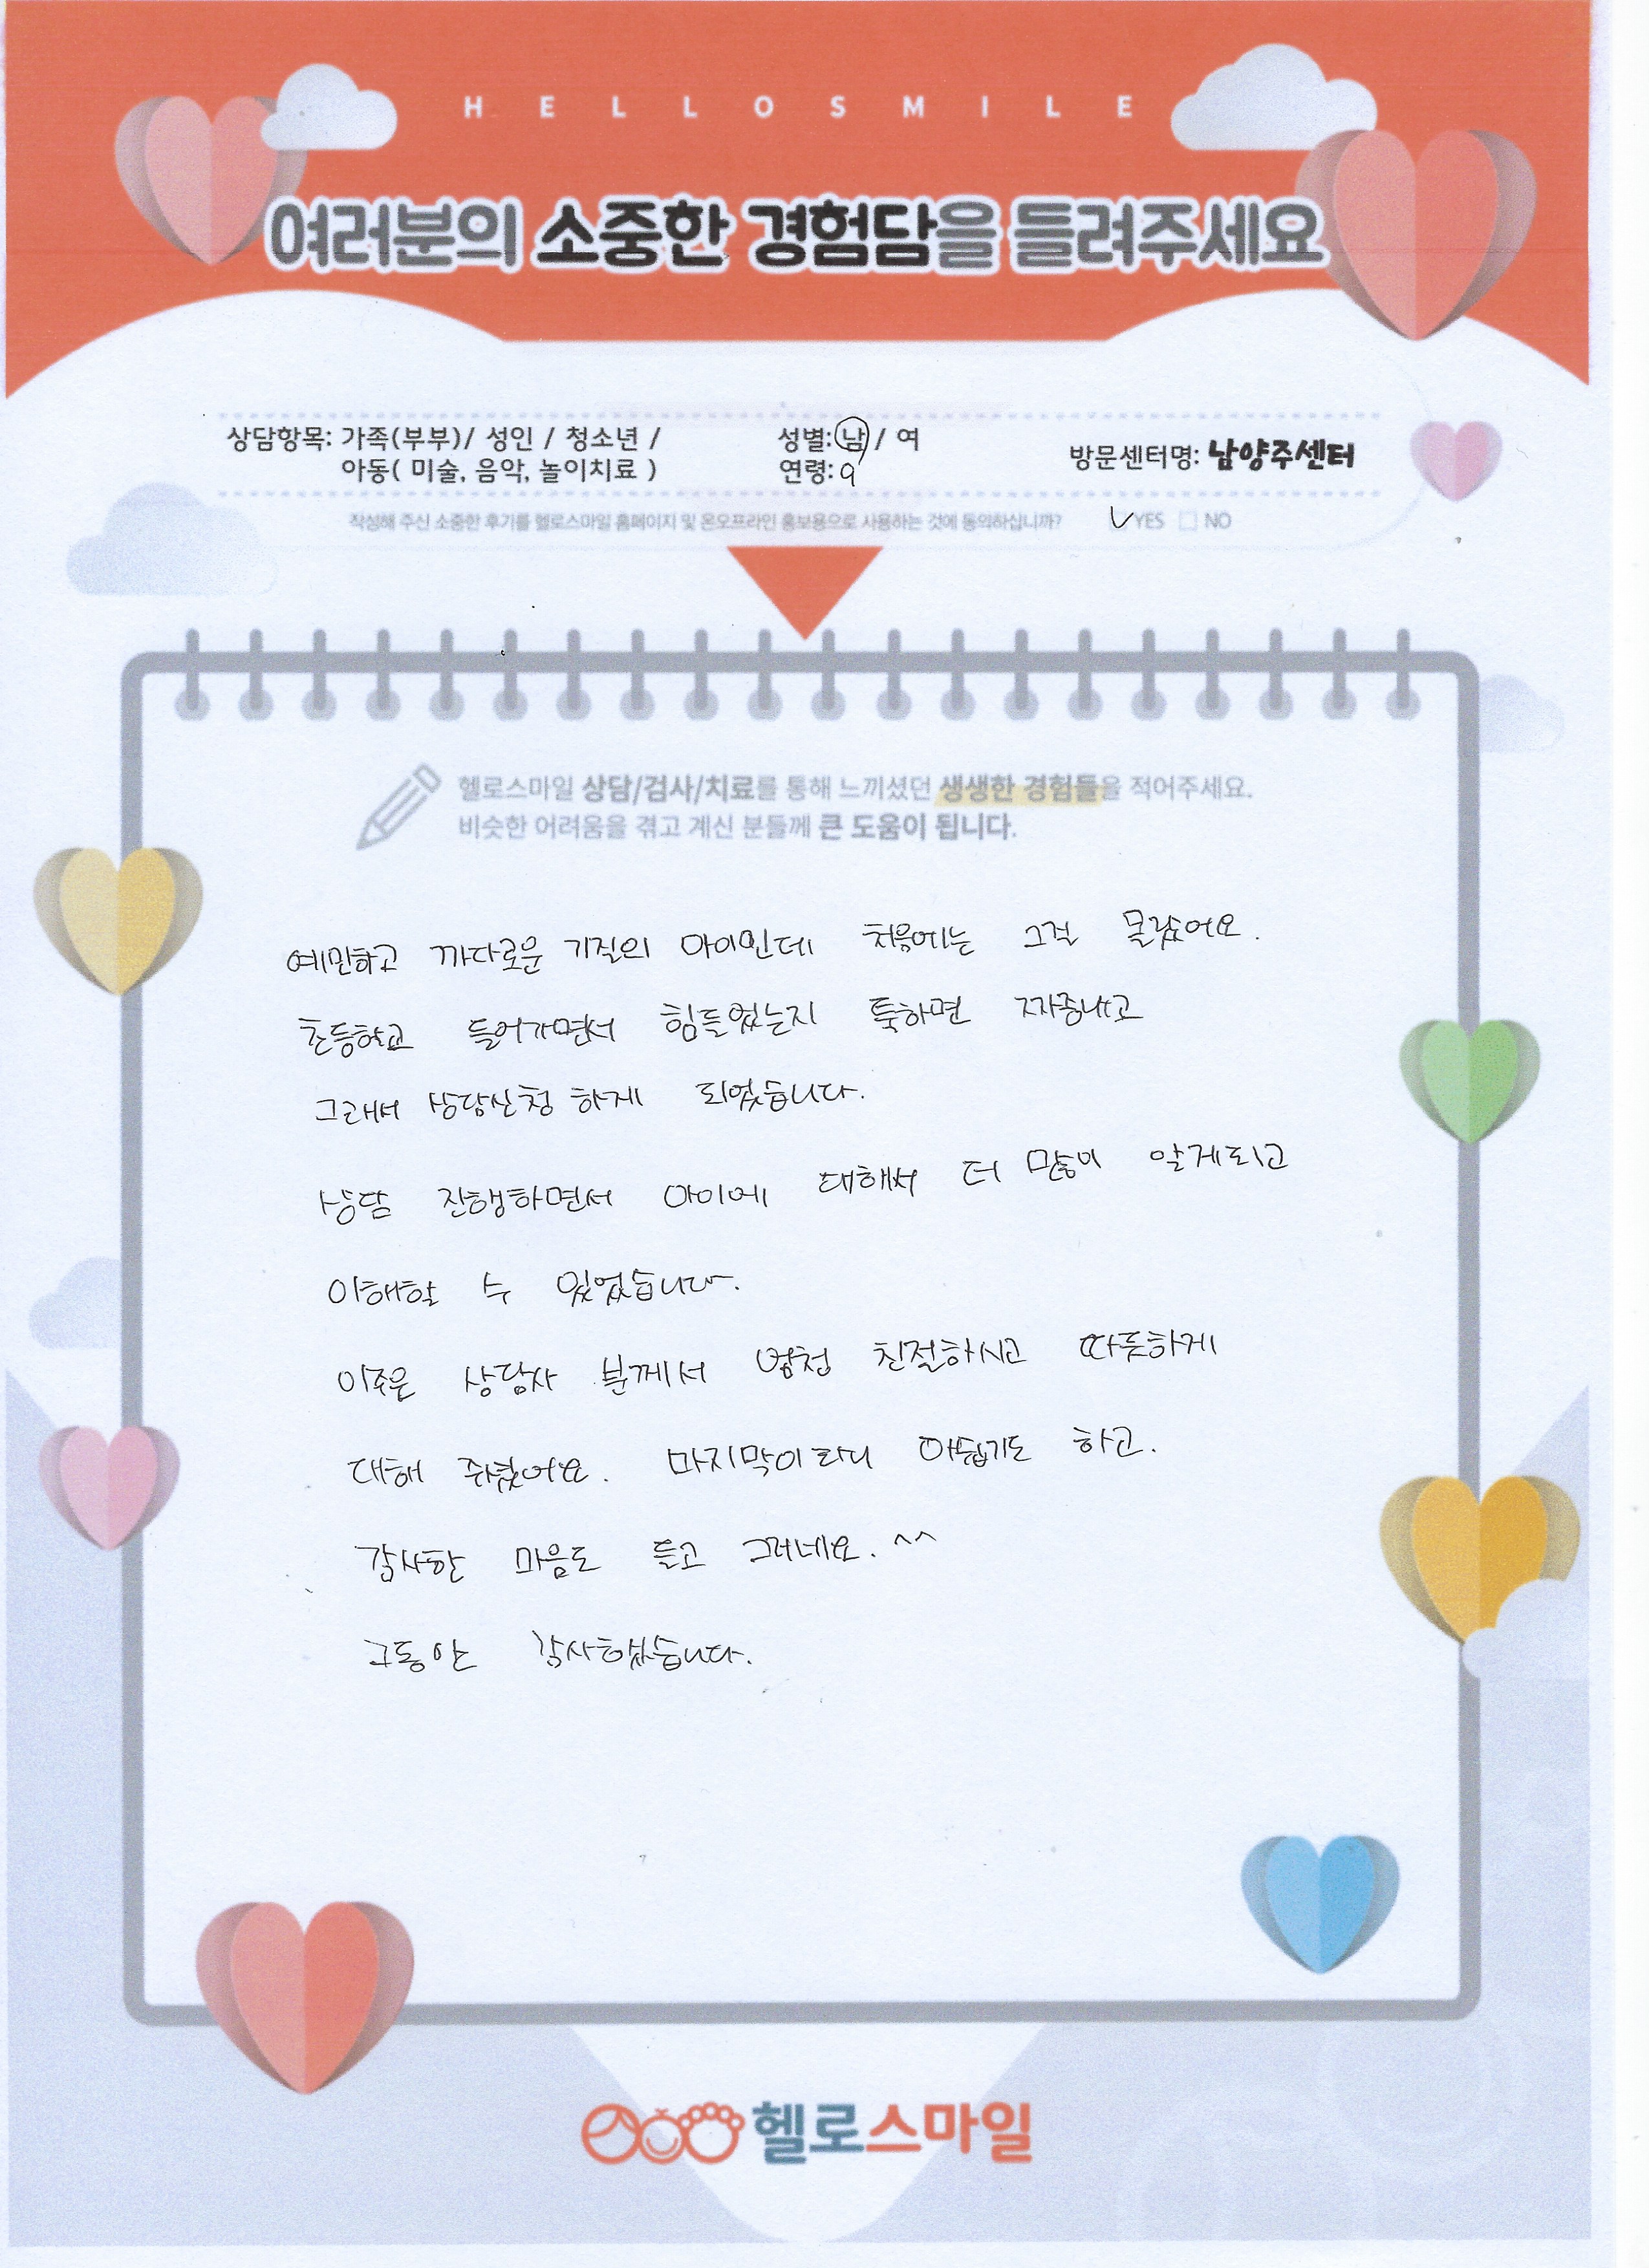 HELLOSMILE
여러분의 소중한 경험담을 들려주세요
상담항목: 가족(부부)/ 성인 / 청소년 /
아동( 미술, 음악, 놀이치료 )
성별: 남 / 여
연령: 9
방문센터명: 남양주센터
작성해 주신 소중한 후기를 헬로스마일 홈페이지 및 온오프라인 홍보용으로 사용하는 것에 동의하십니까? YES NO
헬로스마일 상담/검사/치료를 통해 느끼셨던 생생한 경험들을 적어주세요.
비슷한 어려움을 겪고 계신 분들께 큰 도움이 됩니다.
예민하고 까다로운 기질의 아이인데 처음에는 그걸 몰랐어요.
초등학교 들어가면서 힘들었는지 툭하면 짜증내고
그래서 상담신청 하게 되었습니다.
상담 진행하면서 아이에 대해서 더 많이 알게되고
이해할 수 있었습니다.
상담사 분께서 엄청 친절하시고 따뜻하게
대해 주셨어요. 마지막이라니 아쉽기도 하고.
감사한 마음도 들고 그러네요. ^^
그동안 감사했습니다.
헬로스마일